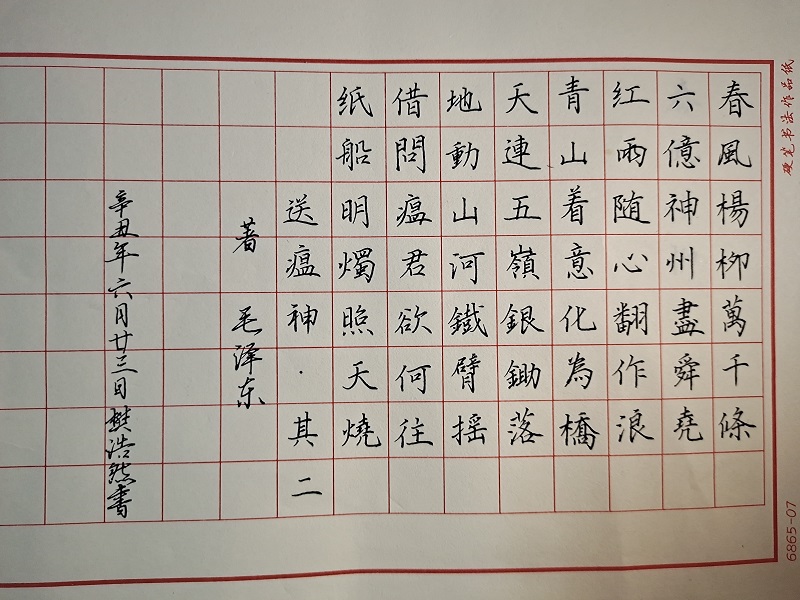 春風楊柳萬千條
六億神州盡舜堯
紅雨随心翻作浪
青山着意化為橋
天連五嶺銀鋤落
地動山河鐵臂摇
借問瘟君欲何往
纸船明燭照天燒
送瘟神·其二
著 毛泽东
辛丑年六月廿三日樊浩然書
硬笔书法作品纸
6865-07